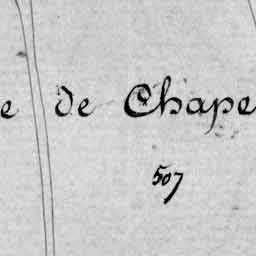 e de Chape
507